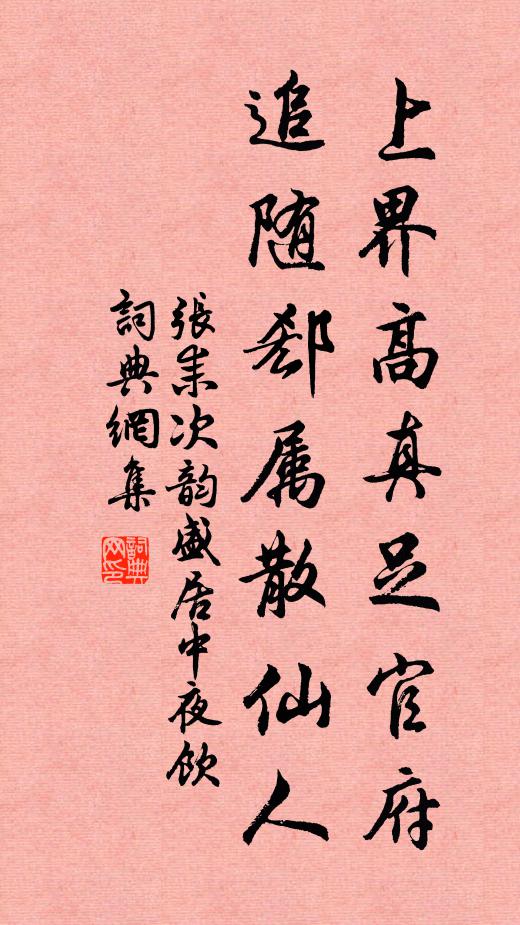 上界高真足官府
追随郄属散仙人
張耒次韵盛居中夜飲
詞典網集
詞典網印